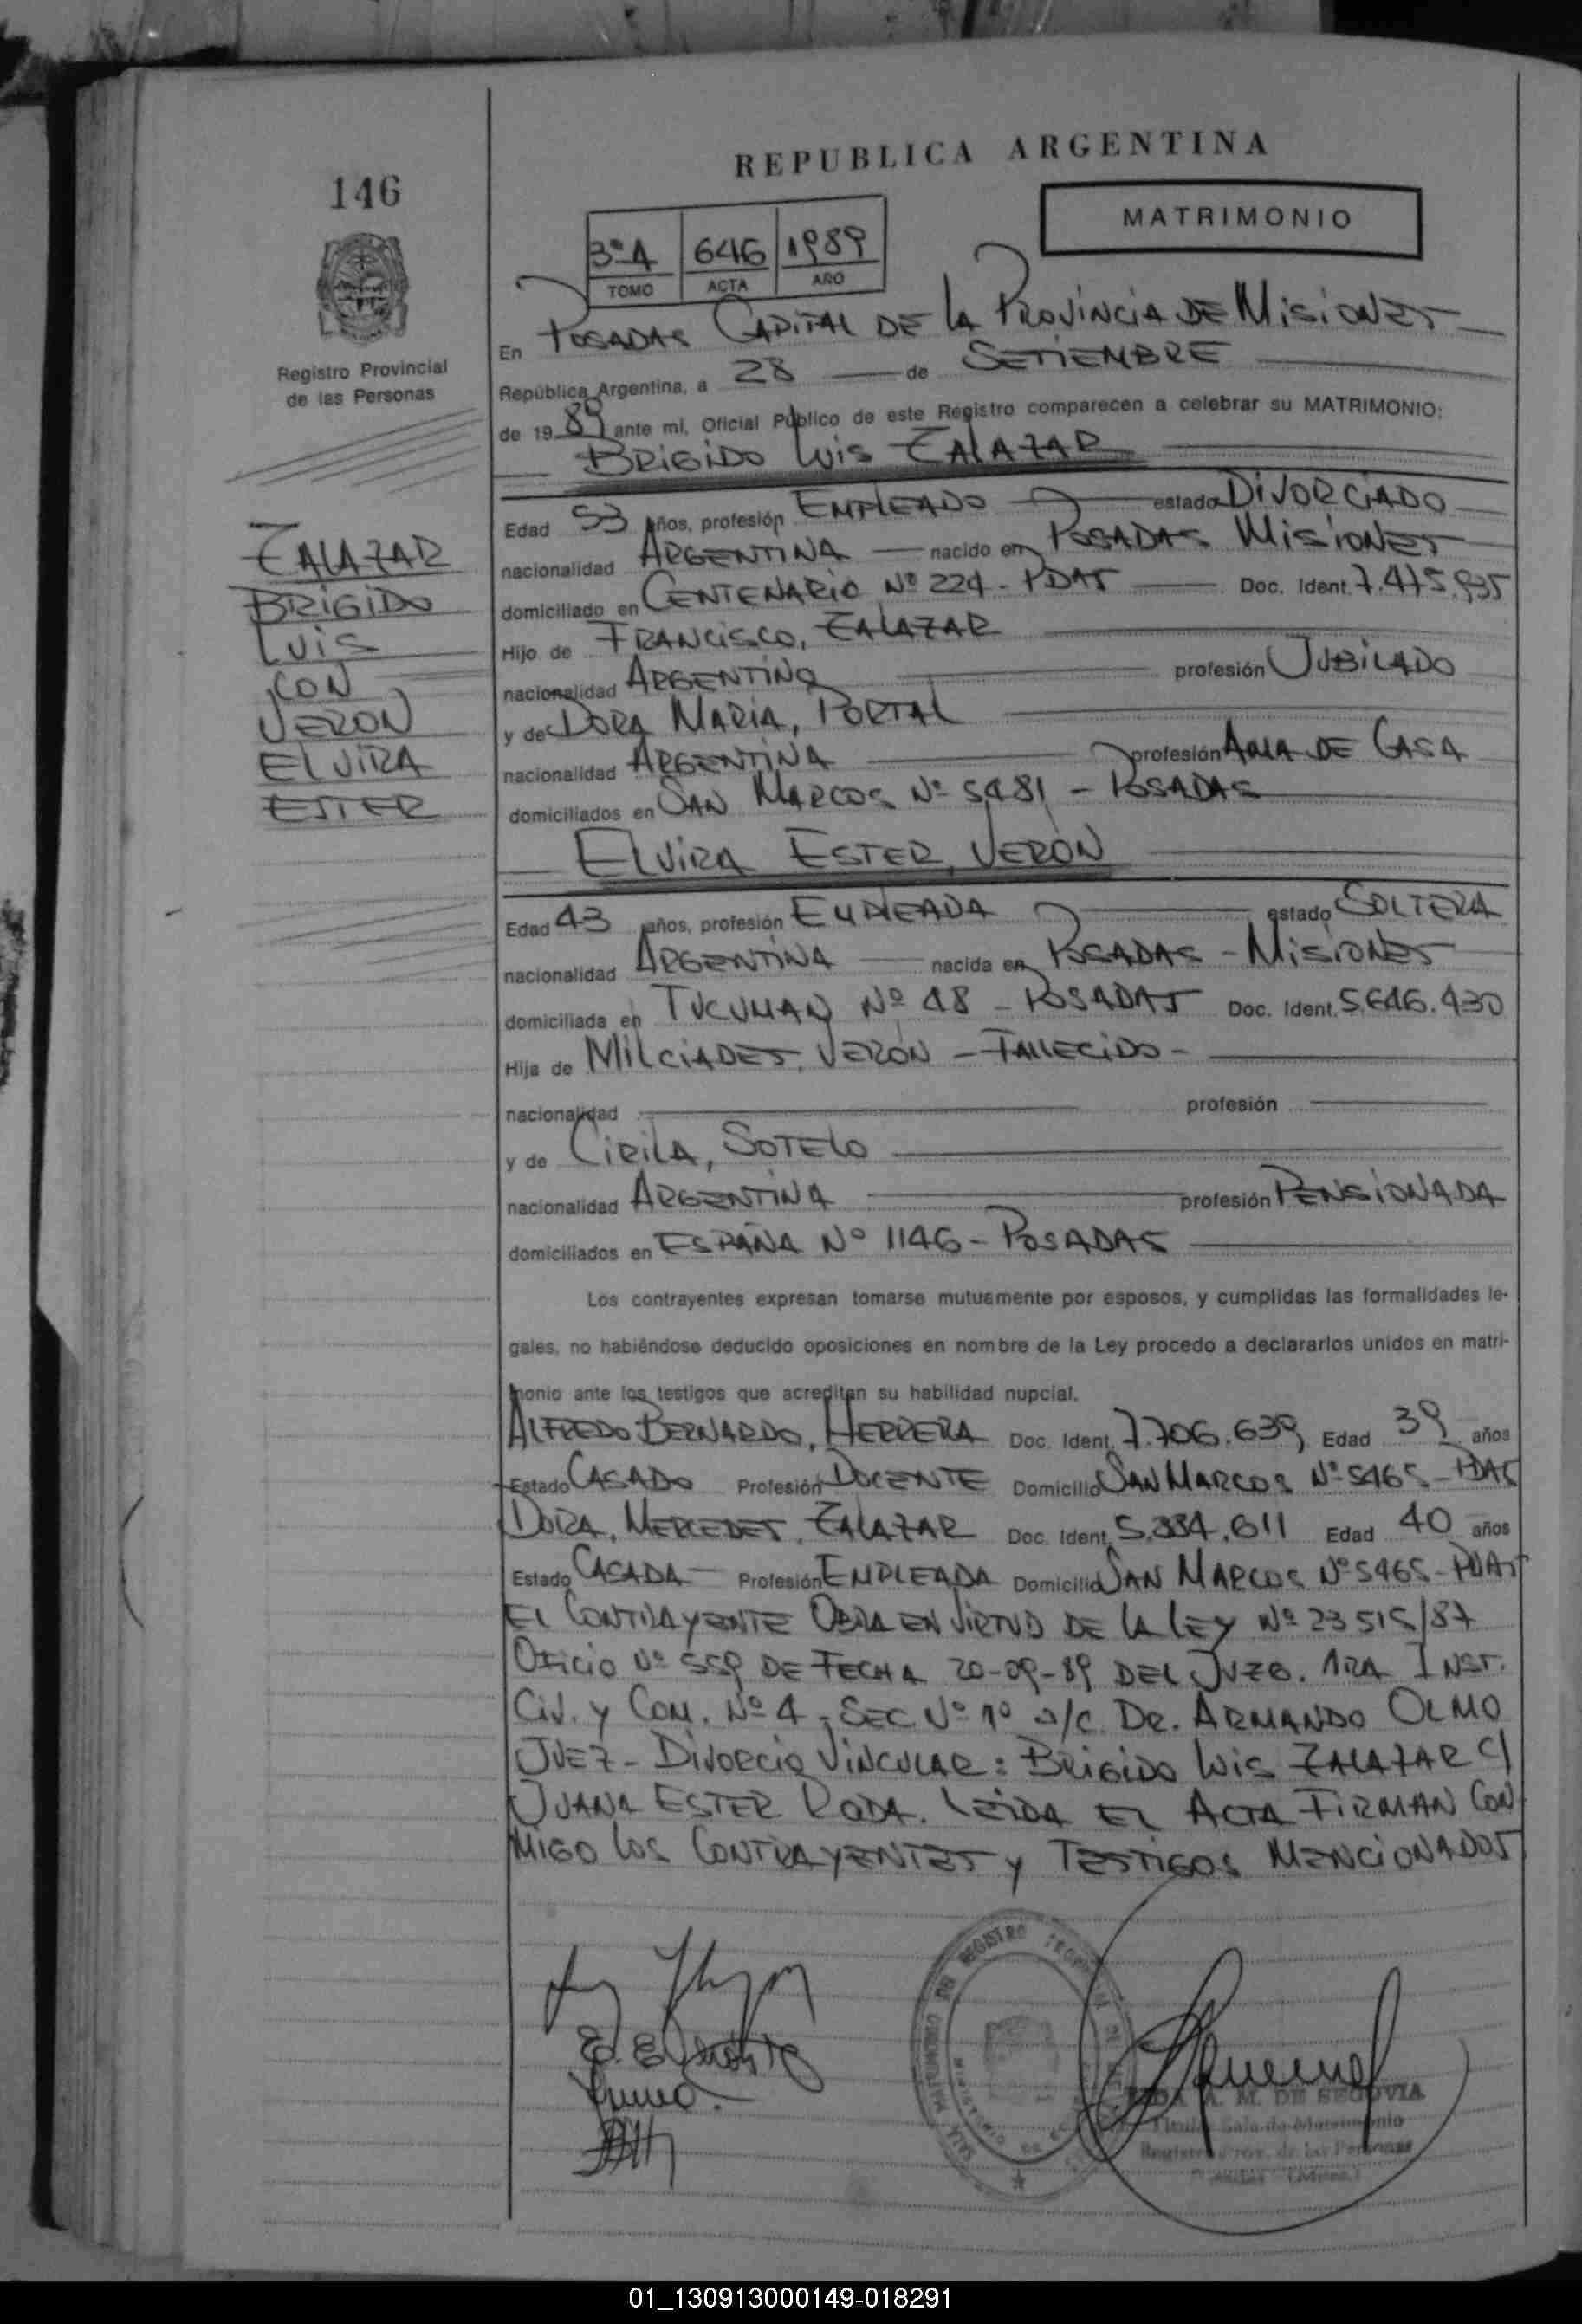 REPUBLICA ARGENTINA
146
MATRIMONIO
3º4 646 1989
TOMO ACTA AÑO
Registro Provincial
de las Personas
En POSADAS CAPITAL DE LA PROVINCIA DE MISIONES
República Argentina, a 28 de SETIEMBRE
de 1989 ante mí, Oficial Público de este Registro comparecen a celebrar su MATRIMONIO:
BRIGIDO LUIS ZALAZAR
Edad 53 años, profesión EMPLEADO estado DIVORCIADO
nacionalidad ARGENTINA nacido en POSADAS MISIONES
domiciliado en CENTENARIO Nº 224 - PDAS Doc. Ident. 7.475.935
Hijo de FRANCISCO, ZALAZAR
nacionalidad ARGENTINO profesión JUBILADO
y de DORA MARIA, PORTAL
nacionalidad ARGENTINA profesión AMA DE CASA
domiciliados en SAN MARCOS Nº 5481 - POSADAS
ZALAZAR
BRIGIDO
LUIS
CON
VERON
ELVIRA
ESTER
ELVIRA ESTER, VERÓN
Edad 43 años, profesión EMPLEADA estado SOLTERA
nacionalidad ARGENTINA nacida en POSADAS - MISIONES
domiciliada en TUCUMAN Nº 48 - POSADAS Doc. Ident. 5.646.430
Hija de MILCIADES, VERÓN - FALLECIDO -
nacionalidad profesión
y de CIRILA, SOTELO
nacionalidad ARGENTINA profesión PENSIONADA
domiciliados en ESPAÑA Nº 1146 - POSADAS
Los contrayentes expresan tomarse mutuamente por esposos, y cumplidas las formalidades le-
gales, no habiéndose deducido oposiciones en nombre de la Ley procedo a declararlos unidos en matri-
monio ante los testigos que acreditan su habilidad nupcial.
ALFREDO BERNARDO, HERRERA Doc. Ident. 7.706.639 Edad 39 años
Estado CASADO Profesión DOCENTE Domicilio SAN MARCOS Nº 5465 - PDAS
DORA, MERCEDES, ZALAZAR Doc. Ident. 5.334.611 Edad 40 años
Estado CASADA Profesión EMPLEADA Domicilio SAN MARCOS Nº 5465 - PDAS
EL CONTRAYENTE OBRA EN VIRTUD DE LA LEY Nº 23515/87
OFICIO Nº 559 DE FECHA 20-09-89 DEL JUZG. 1RA INST.
CIV. Y COM. Nº 4 - SEC Nº 1º a/c. DR. ARMANDO OLMO
JUEZ - DIVORCIO VINCULAR: BRIGIDO LUIS ZALAZAR C/
JUANA ESTER RODA. LEIDA EL ACTA FIRMAN CON
MIGO LOS CONTRAYENTES Y TESTIGOS MENCIONADOS
A. M. DE SEGOVIA
Titular Sala de Matrimonio
Registro Prov. de las Personas
01_130913000149-018291